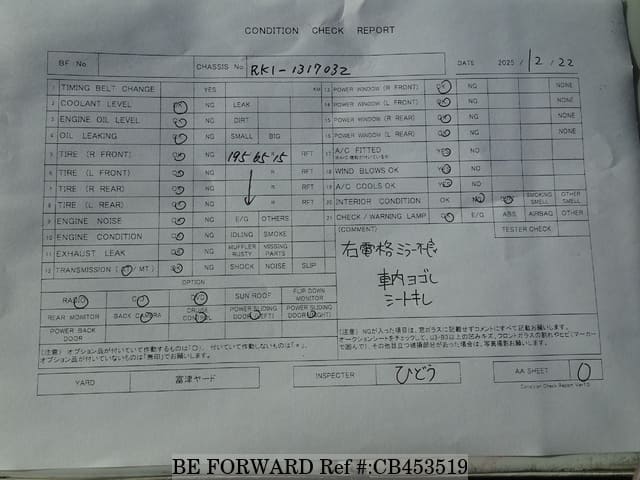 CONDITION CHECK REPORT
BF No. CHASSIS No RK1-1317032 DATE 2025 / 12 / 22
1 TIMING BELT CHANGE YES KM
2 COOLANT LEVEL OK NG LEAK
3 ENGINE OIL LEVEL OK NG DIRT
4 OIL LEAKING OK NG SMALL BIG
5 TIRE (R FRONT) OK NG 195 65 15 RFT
6 TIRE (L FRONT) OK NG R RFT
7 TIRE (R REAR) OK NG R RFT
8 TIRE (L REAR) OK NG R RFT
9 ENGINE NOISE OK NG E/G OTHERS
10 ENGINE CONDITION OK NG IDLING SMOKE
11 EXHAUST LEAK OK NG MUFFLER RUSTY MISSING PARTS
12 TRANSMISSION (AT/MT) OK NG SHOCK NOISE SLIP
13 POWER WINDOW (R FRONT) OK NG NONE
14 POWER WINDOW (L FRONT) OK NG NONE
15 POWER WINDOW (R REAR) OK NG NONE
16 POWER WINDOW (L REAR) OK NG NONE
17 A/C FITTED YES NO
18 WIND BLOWS OK YES NO
19 A/C COOLS OK YES NO
20 INTERIOR CONDITION OK NG SMOKING SMELL OTHER SMELL
21 CHECK/WARNING LAMP OK E/G ABS AIRBAG OTHER
(COMMENT) TESTER CHECK
右電格ミラー不良
車内ヨゴレ
シートキレ
OPTION
RADIO CD DVD SUN ROOF FLIP DOWN MONITOR
REAR MONITOR BACK CAMERA CRUISE CONTROL POWER SLIDING DOOR (LEFT) POWER SLIDING DOOR (RIGHT)
POWER BACK DOOR
(注意) オプション品が付いていて作動するものは「○」、付いていて作動しないものは「×」、
オプション品が付いていないものは「無印」でお願いします。
(注意) NGが入った項目は、窓ガラスに記載せずコメントにすべて記載お願いします。
YARD 富津ヤード INSPECTER ひどう AA SHEET 0
Condition Check Report Ver1.0
BE FORWARD Ref #:CB453519